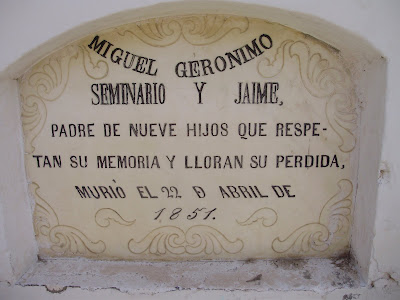 MIGUEL GERONIMO
SEMINARIO Y JAIME,
PADRE DE NUEVE HIJOS QUE RESPE-
TAN SU MEMORIA Y LLORAN SU PERDIDA,
MURIÓ EL 22 D ABRIL DE
1851.